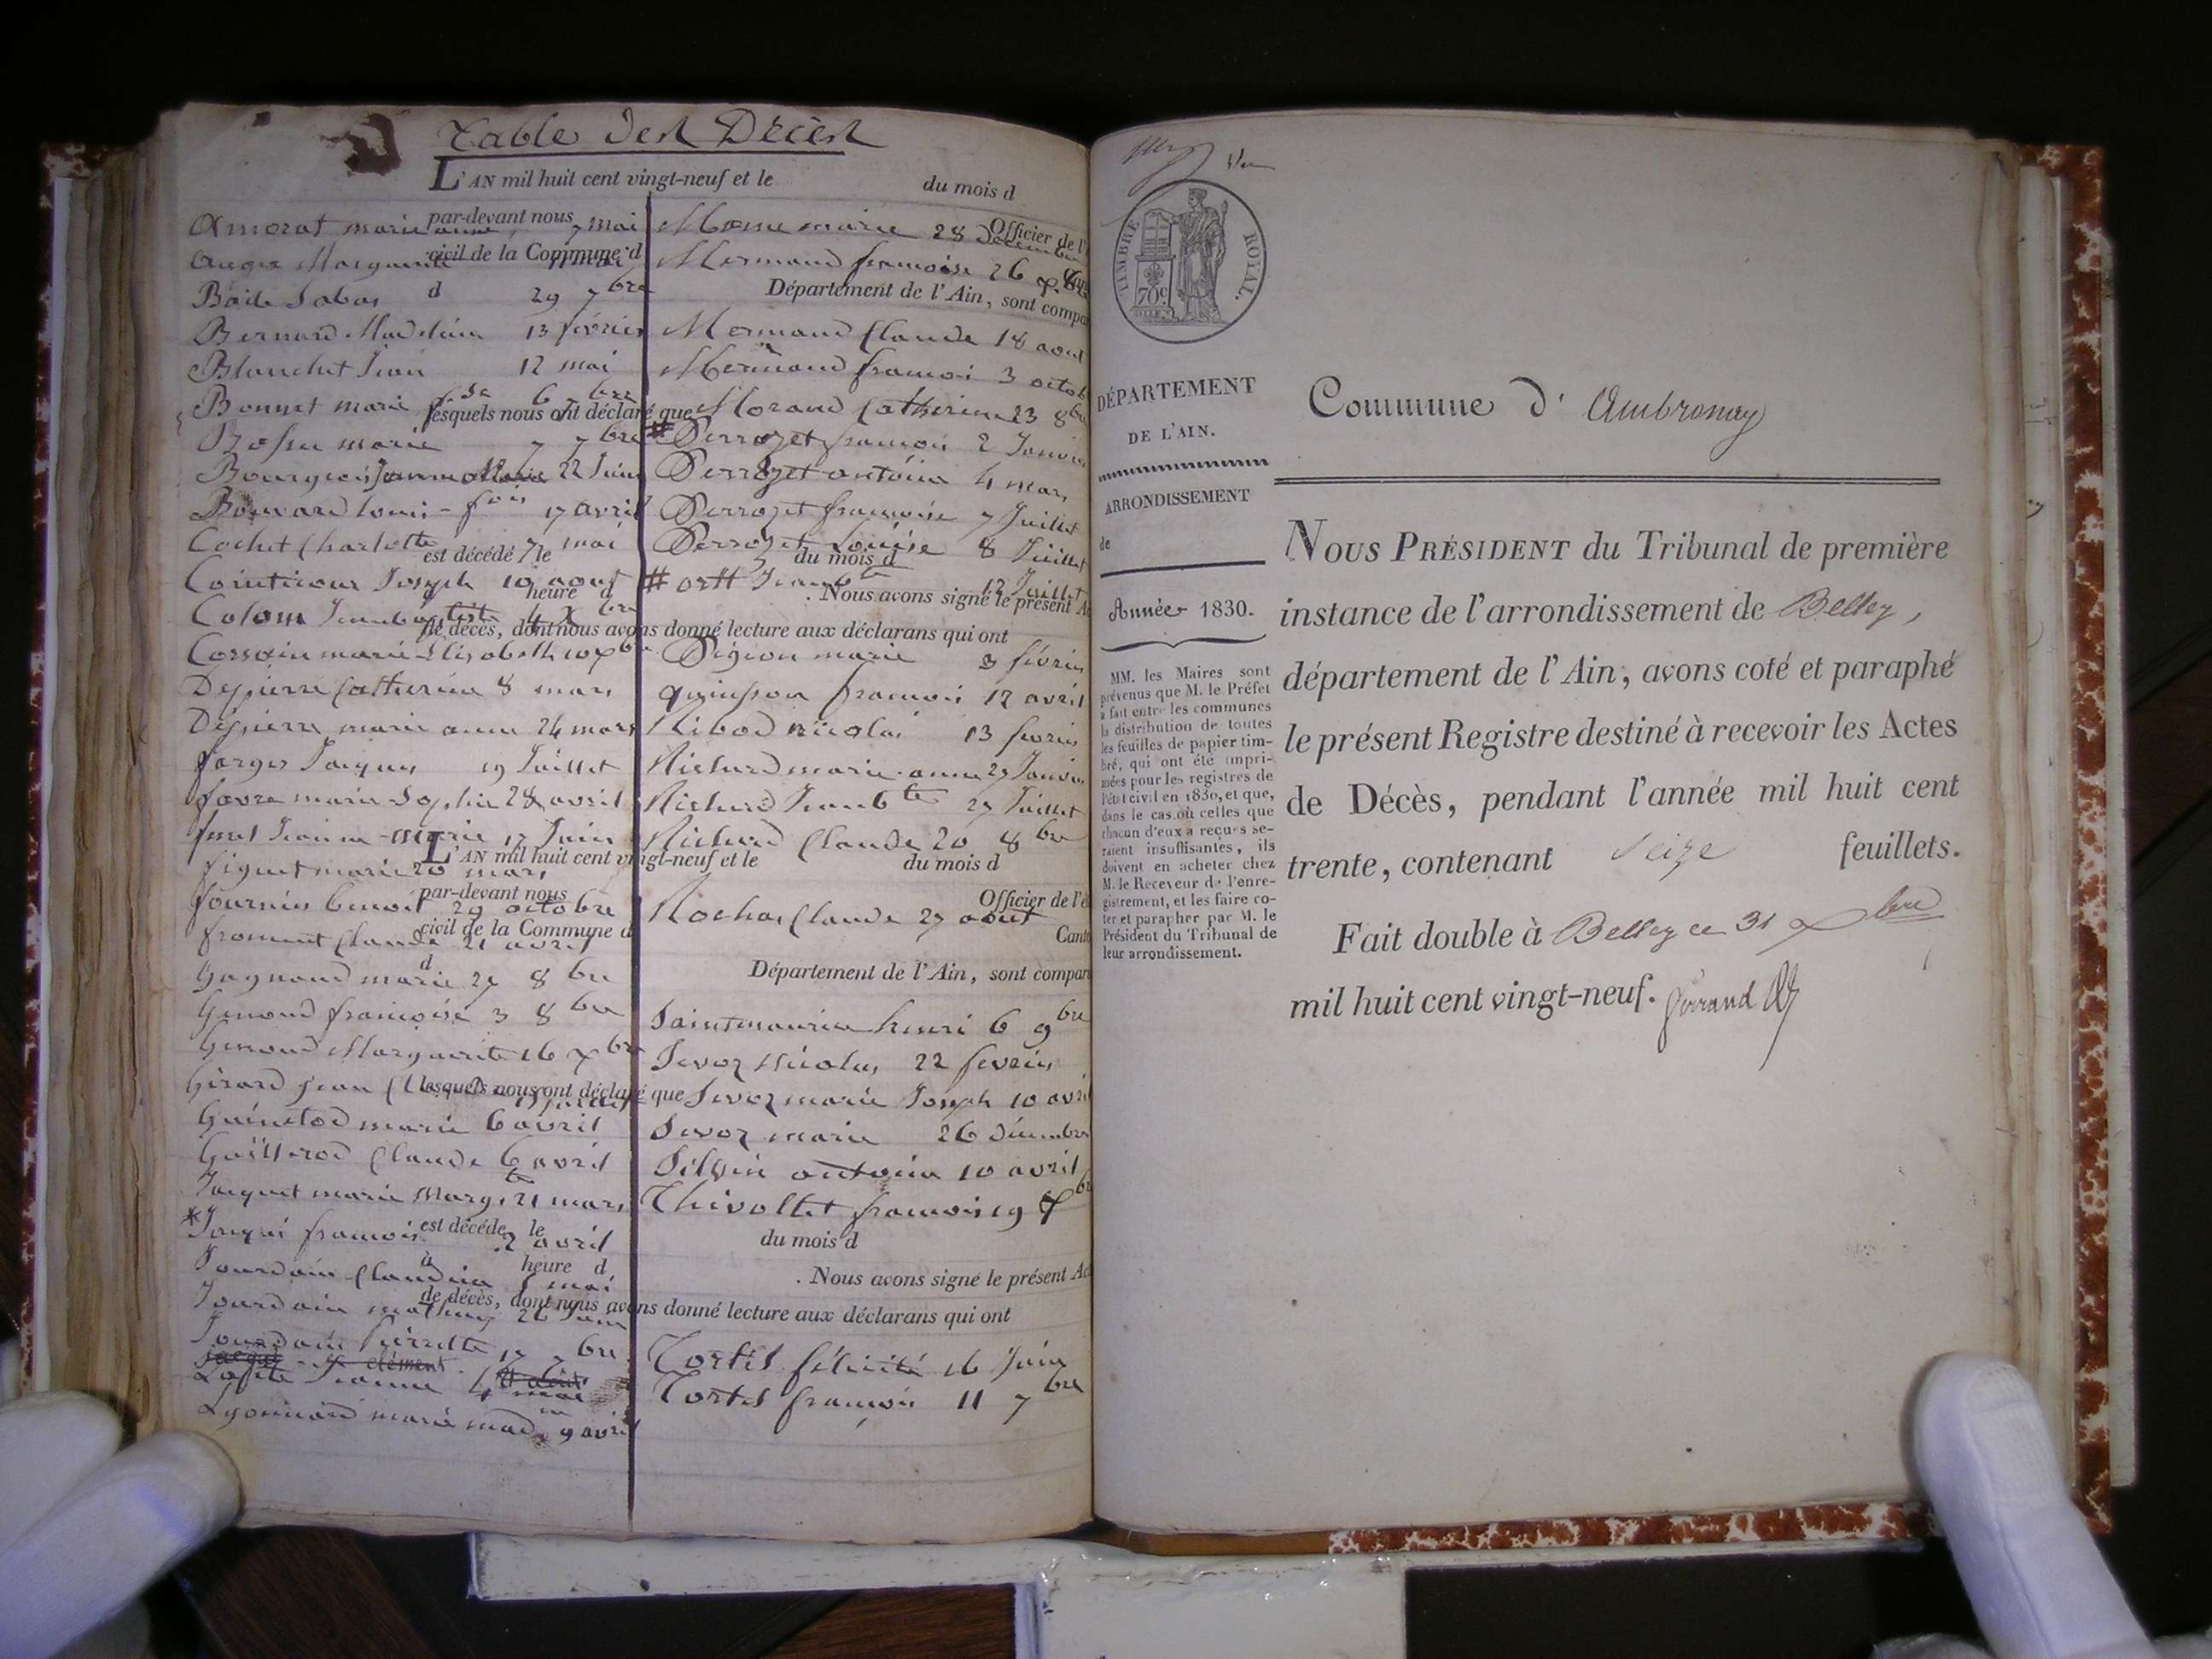 Table des Décès
L'AN mil huit cent vingt-neuf et le du mois d
par-devant nous
Officier de l'
civil de la Commune d
d
Département de l'Ain, sont compa
lesquels nous ont déclaré que
est décédé le du mois d
à heure d . Nous avons signé le présent A
de décès, dont nous avons donné lecture aux déclarans qui ont
Amorat marie anne 7 mai
Bernard Madelaine 13 février
Blanchet Jean 12 mai
Bonnet marie
Bossu marie 7 7bre
Bourgeois 22 Juin
Bouvard louis-fois 17 avril
Cochet Charlotte 7 mai
Joseph 10 aout
Colom Jean baptiste 4 Xbre
marie Elisabeth 10 Xbre
Depierre Catherine 8 mars
Depierre marie anne 24 mars
farges Jacques 19 Juillet
favre marie Sophie 28 avril
Jeanne-Marie 17 Juin
figuet marie 20 mars
L'AN mil huit cent vingt-neuf et le du mois d
par-devant nous
fournier benoit 29 octobre
Officier de l'é
froment Claude 21 avril
civil de la Commune d
Cant
d
Département de l'Ain, sont compar
Gagnaud marie 27 8bre
Genoud françoise 3 8bre
Genoud Marguerite 16 Xbre
Girard Jean
lesquels nous ont déclaré que
marie 6 avril
Claude 6 avril
Jacquet marie Margte 21 mars
françois 2 avril
est décédé le
du mois d
à heure d
. Nous avons signé le présent Ac
Jourdain Claudine mai
de décès, dont nous avons donné lecture aux déclarans qui ont
Jourdain 26 Juin
Jourdain Pierrette 17 7bre
Jeanne 4 mai
Lyonnard marie madne 9 avril
marie 28 Decembre
Mermand françoise 26
Mermand Claude 18 aout
Mermand francois 3 octob
Morand Catherine 23 8bre
# Perrozet francois 2 Janvier
Perrozet antoine 4 mars
Perrozet francoise 7 Juillet
Perrozet Louise 8 Juillet
# Jean bte 12 Juillet
Pigeon marie 3 février
quinson francois 12 avril
Ribod nicolas 13 fevrier
Richard marie-anne 29 Janvier
Richard Jean bte 27 Juillet
Richard Claude 20 8bre
Rochas Claude 27 aout
Saintmaurice henri 6 9bre
Sevoz Nicolas 22 fevrier
Sevoz marie Joseph 10 avril
Sevoz marie 26 Décembre
Silvin antoine 10 avril
Thivollet francois 19
Tortel félicité 16 Juin
Tortel françois 11 7bre
TIMBRE ROYAL.
70c
DÉPARTEMENT
DE L'AIN.
ARRONDISSEMENT
de
Année 1830.
MM. les Maires sont
prévenus que M. le Préfet
a fait entre les communes
la distribution de toutes
les feuilles de papier tim-
bré, qui ont été impri-
mées pour les registres de
l'état civil en 1830, et que,
dans le cas où celles que
chacun d'eux a reçues se-
raient insuffisantes, ils
doivent en acheter chez
M. le Receveur de l'enre-
gistrement, et les faire co-
ter et parapher par M. le
Président du Tribunal de
leur arrondissement.
Commune d'Ambronay
NOUS PRÉSIDENT du Tribunal de première
instance de l'arrondissement de Belley,
département de l'Ain, avons coté et paraphé
le présent Registre destiné à recevoir les Actes
de Décès, pendant l'année mil huit cent
trente, contenant seize feuillets.
Fait double à Belley ce 31 Xbre
mil huit cent vingt-neuf.